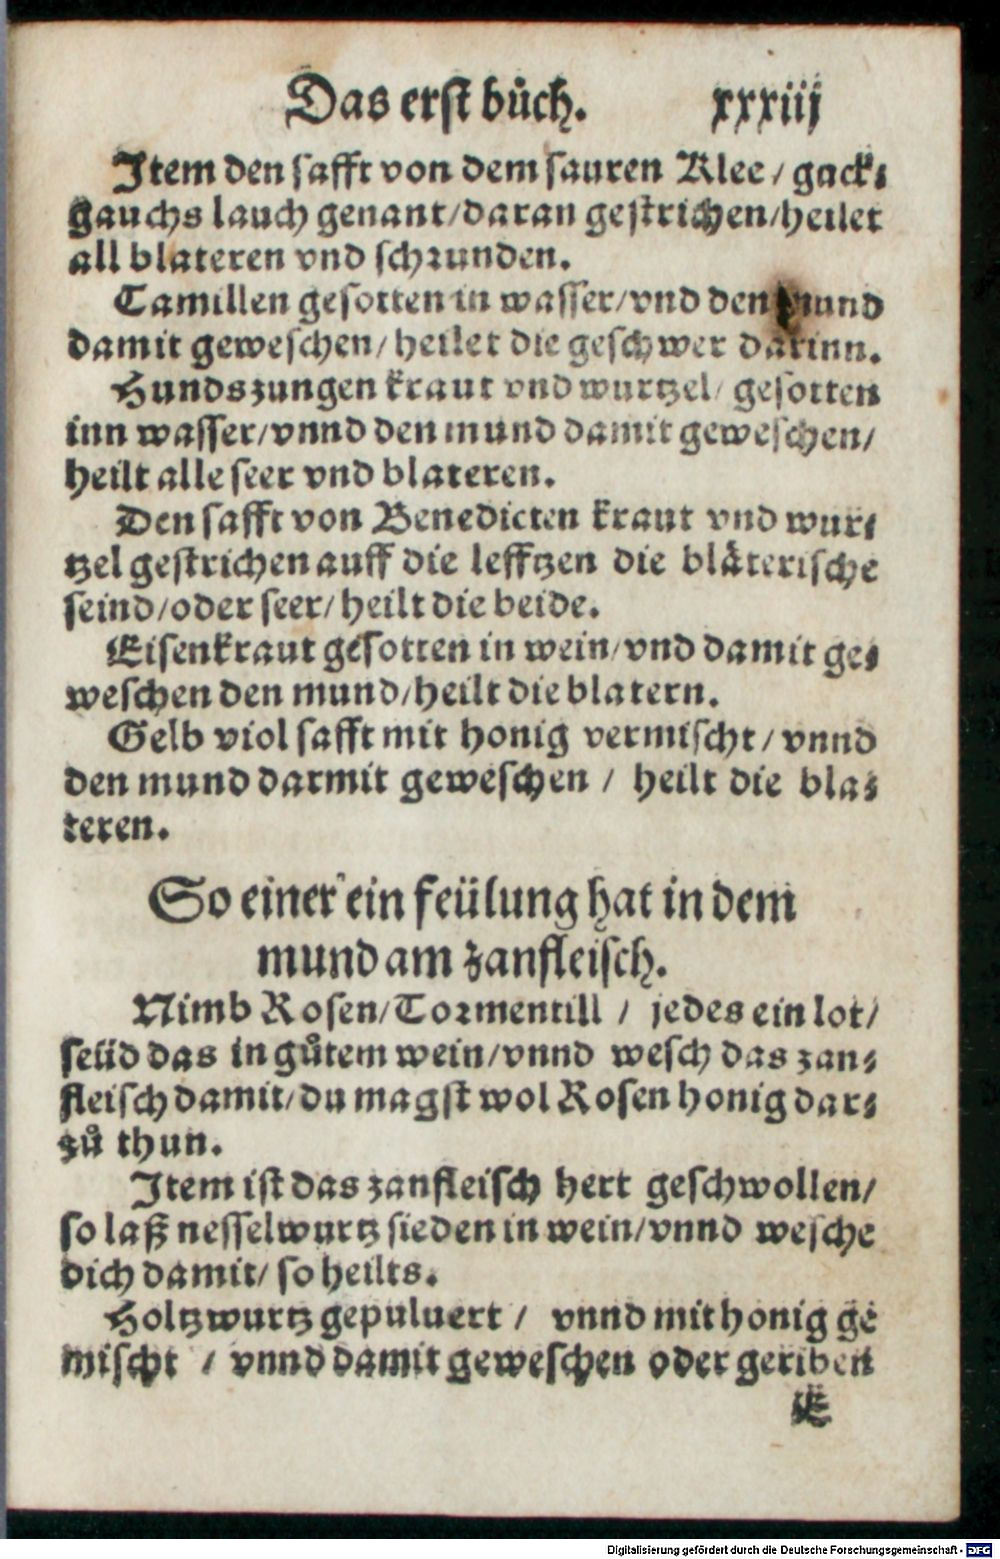 Das erst bůch. xxxiij
Item den safft von dem sauren Klee / guck⸗
gauchs lauch genant/daran gestrichen/heilet
all blateren vnd schrunden.
Camillen gesotten in wasser/vnd den mund
damit geweschen/heilet die geschwer darinn.
Hundszungen kraut vnd wurtzel/ gesotten
inn wasser/vnnd den mund damit geweschen/
heilt alle seer vnd blateren.
Den safft von Benedicten kraut vnd wur⸗
tzel gestrichen auff die lefftzen die blåterische
seind/oder seer/heilt die beide.
Eisenkraut gesotten in wein/vnd damit ge⸗
weschen den mund/heilt die blatern.
Gelb viol safft mit honig vermischt/vnnd
den mund darmit geweschen / heilt die bla⸗
teren.
So einer ein feülung hat in dem
mund am zanfleisch.
Nimb Rosen/Tormentill / jedes ein lot/
seüd das in gůtem wein/vnnd wesch das zan⸗
fleisch damit/du magst wol Rosen honig dar⸗
zů thun.
Item ist das zanfleisch hert geschwollen/
so laß nesselwurtz sieden in wein/vnnd wesche
dich damit/ so heilts.
Holtzwurtz gepuluert / vnnd mit honig ge
mischt / vnnd damit geweschen oder geriben
E
Digitalisierung gefördert durch die Deutsche Forschungsgemeinschaft - DFG